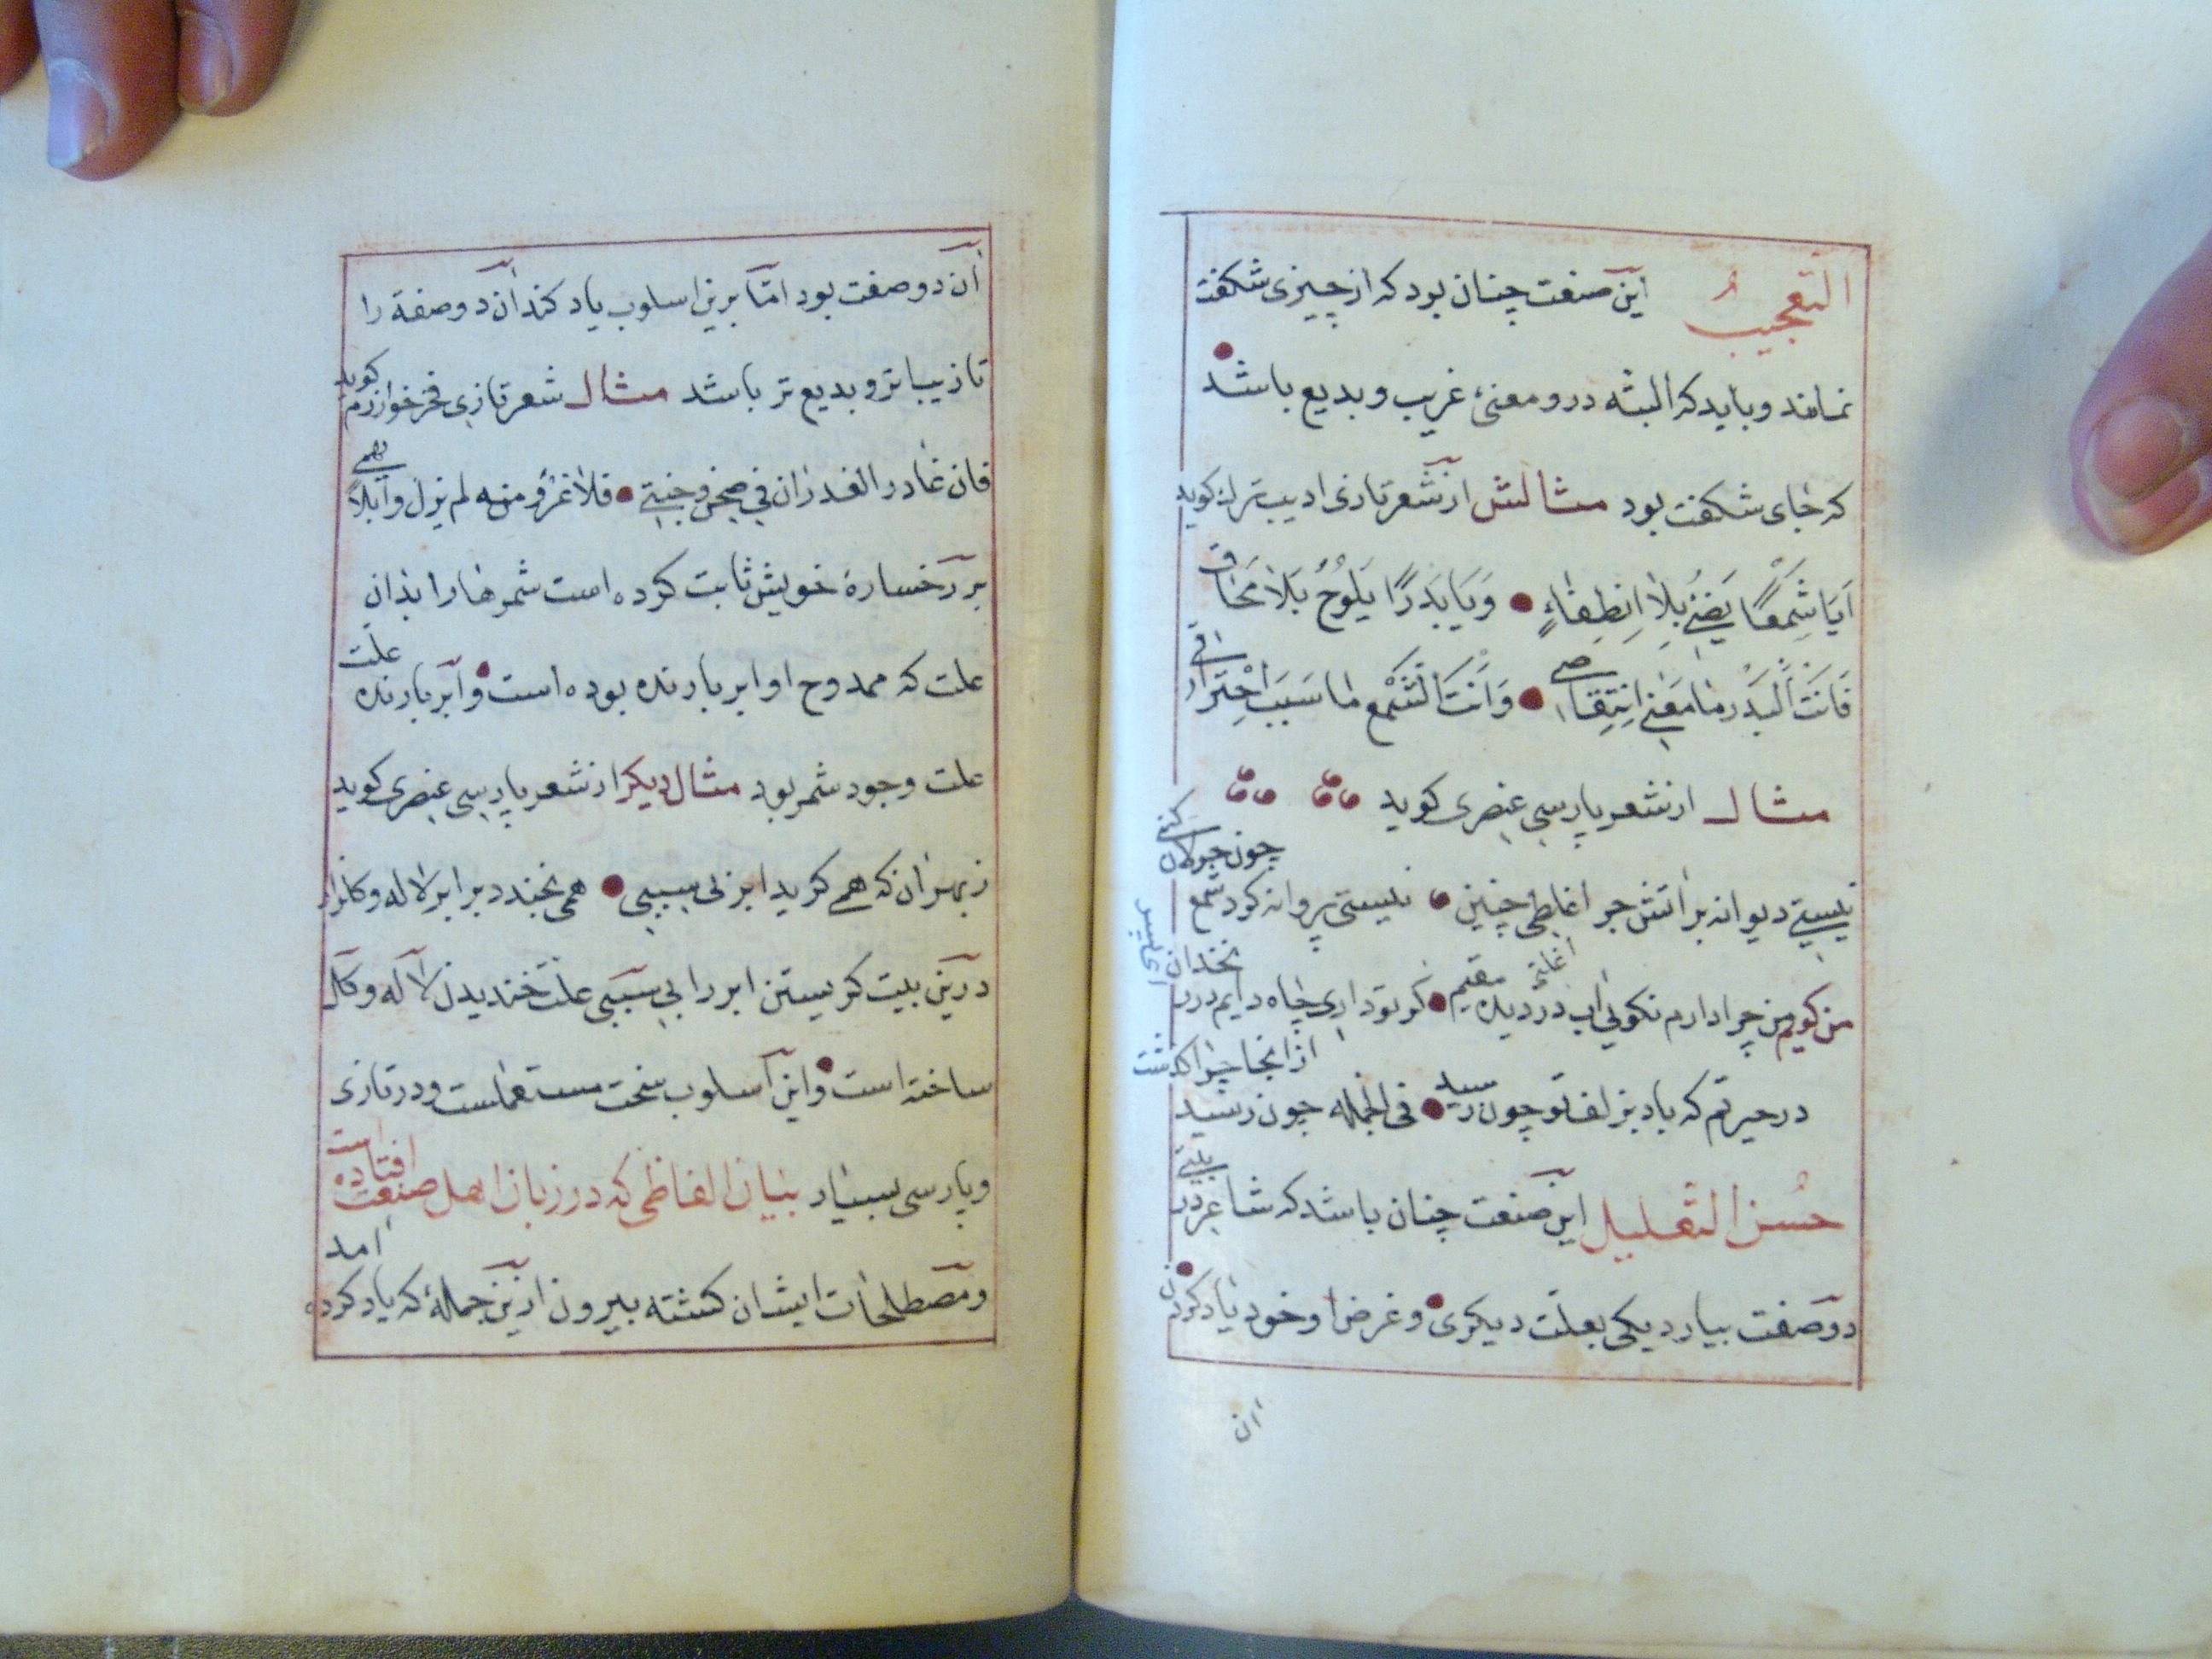 التعجيب این صنعت چنان بود که از چیزی شکفت
نماند و باید که البته درو معنئ غریب و بدیع باشد
که جای شکفت بود مثالش از شعر تازی ادیب ترک کوید
اَیَا شَمعًا یَضئُ بِلاَ اِنطِفَاءٍ وَیَا بَدرًا یَلُوحُ بَلاَ مَحَاق
فَاَنتَ اَلبَدر مٰا مَعنی اِنتِقَاصی وَاَنتَ الشَمع مٰا سَبَبَ احتِراقی
مثال از شعر پارسی عنصری کوید
نیستی دیوانه بر اتش چرا غلطی چنین نیستی پروانه کرد شمع چون جولان کنی
من کویم من چرا دارم نکویی اب در دیده مقیم کر تو داری چاه دایم در زنخدان
در حیرتم که باد بزلف تو چون رسید فی الجمله چون رسید
از انجا چرا کذشت
حُسن التعلیل این صنعت چنان باشد که شاعر در بیتی
دو صفت بیارد یکی بعلّت دیکری و غرض او خود یاد کردن
ان
ان دو صفت بود امّا برین اسلوب یاد کند ان دو صفة را
تا زیباتر و بدیع تر باشد مثال شعر تازی فخر خوارزم کوید
فان غادر الغدران فی صحن وجنتی فلا غرو منه لم یزل وابلاً یهمی
بر رخسارۀ خویش ثابت کرده است شمرها را بذان
علت که ممدوح او ابر بارنده بوده است و ابر بارنده علت
علت وجود شمر بود مثال دیکر از شعر پارسی عنصری کوید
ز بهر ان که همی کرید ابر بی سببی همی بخندد بر ابر لاله و کلزار
درین بیت کریستن ابر را بی سببی علت خندیدن لاله و کل
ساخته است و این اسلوب سخت مستعملست و در تازی
و پارسی بسیار بیان الفاظی که در زبان اهل صنعت افتاده است
و مصطلحات ایشان کشته بیرون ازین جملۀ که یاد کرده امد